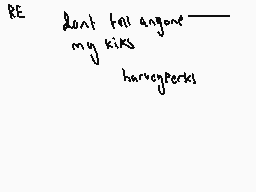 RE
dont tell anyone
my kiks
harveyperks